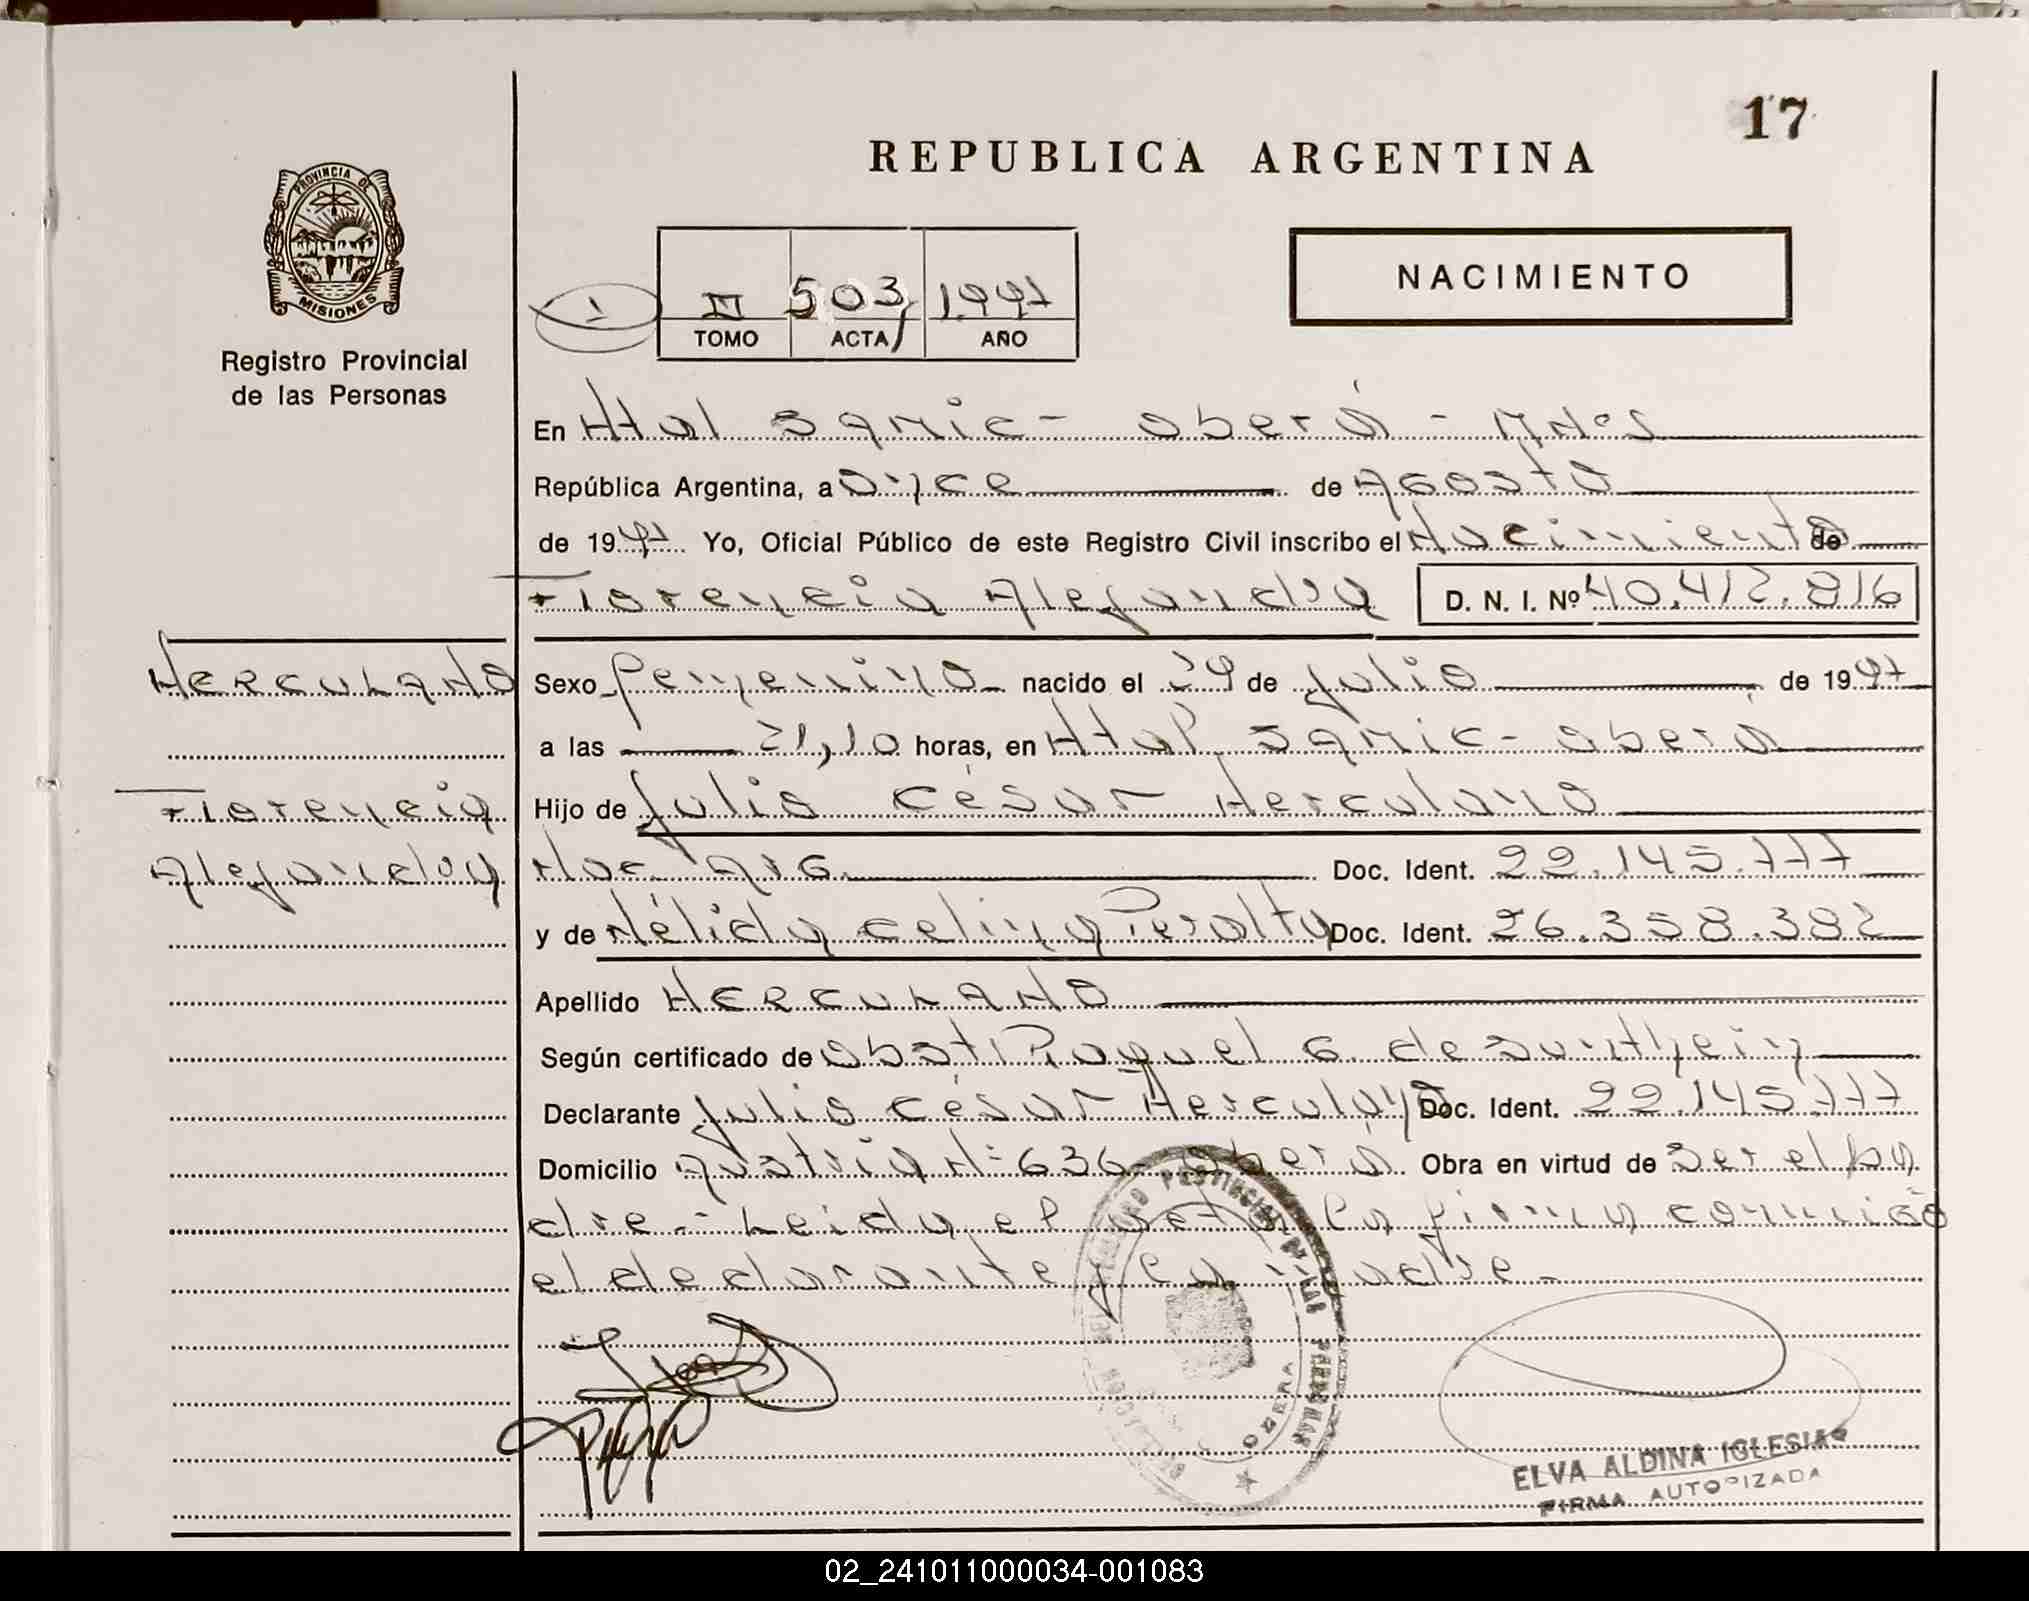 17
REPUBLICA ARGENTINA
PROVINCIA DE
MISIONES
Registro Provincial
de las Personas
NACIMIENTO
1 II 503 1997
TOMO ACTA AÑO
En Htal Samic - Oberá - Mnes
República Argentina, a once de Agosto
de 1997 Yo, Oficial Público de este Registro Civil inscribo el Nacimiento de
Florencia Alejandra D. N. I. Nº 40.412.816
HERCULANO
Florencia
Alejandra
Sexo femenino nacido el 29 de Julio de 1997
a las 21,10 horas, en Htal Samic - Oberá
Hijo de Julio César Herculano
Nac. Arg. Doc. Ident. 22.145.777
y de Nélida Celina Peralta Doc. Ident. 26.358.382
Apellido HERCULANO
Según certificado de Obst. Raquel G. de
Declarante Julio César Herculano Doc. Ident. 22.145.777
Domicilio Austria Nº 636 - Oberá Obra en virtud de Ser el pa
dre.- Leida el acta la firma conmigo
el declarante y la madre.-
OBERA
ELVA ALDINA IGLESIAS
FIRMA AUTORIZADA
02_241011000034-001083